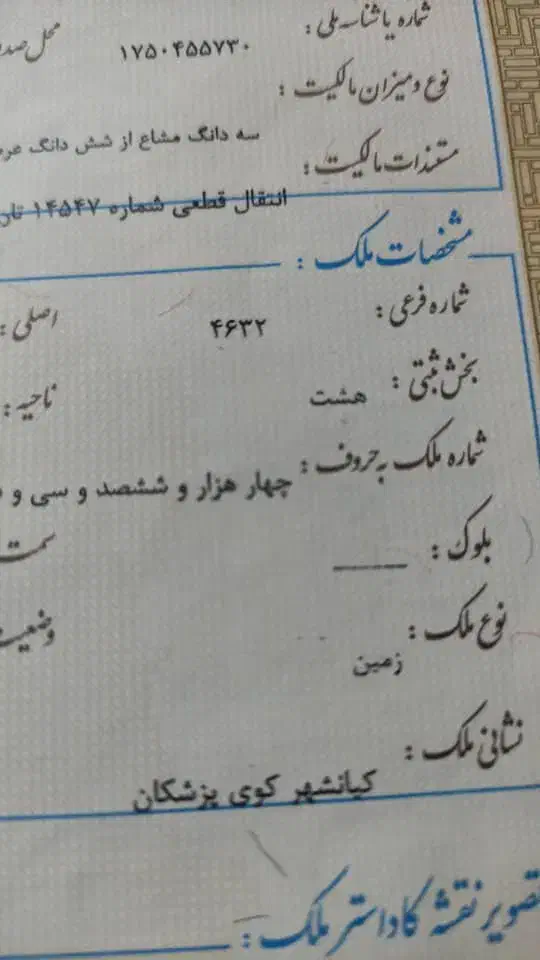 شماره یا شناسه ملی : ۱۷۵۰۴۵۵۷۳۰ محل صد
نوع و میزان مالکیت :
سه دانگ مشاع از شش دانگ عر
مستندات مالکیت :
انتقال قطعی شماره ۱۴۵۴۷ تار
مشخصات ملک :
شماره فرعی : ۴۶۳۲ اصلی :
بخش ثبتی : هشت ناحیه :
شماره ملک به حروف : چهار هزار و ششصد و سی و
بلوک : ـــــــ سمت
نوع ملک : زمین وضعیت
نشانی ملک :
کیانشهر کوی پزشکان
تصویر نقشه کاداستر ملک :